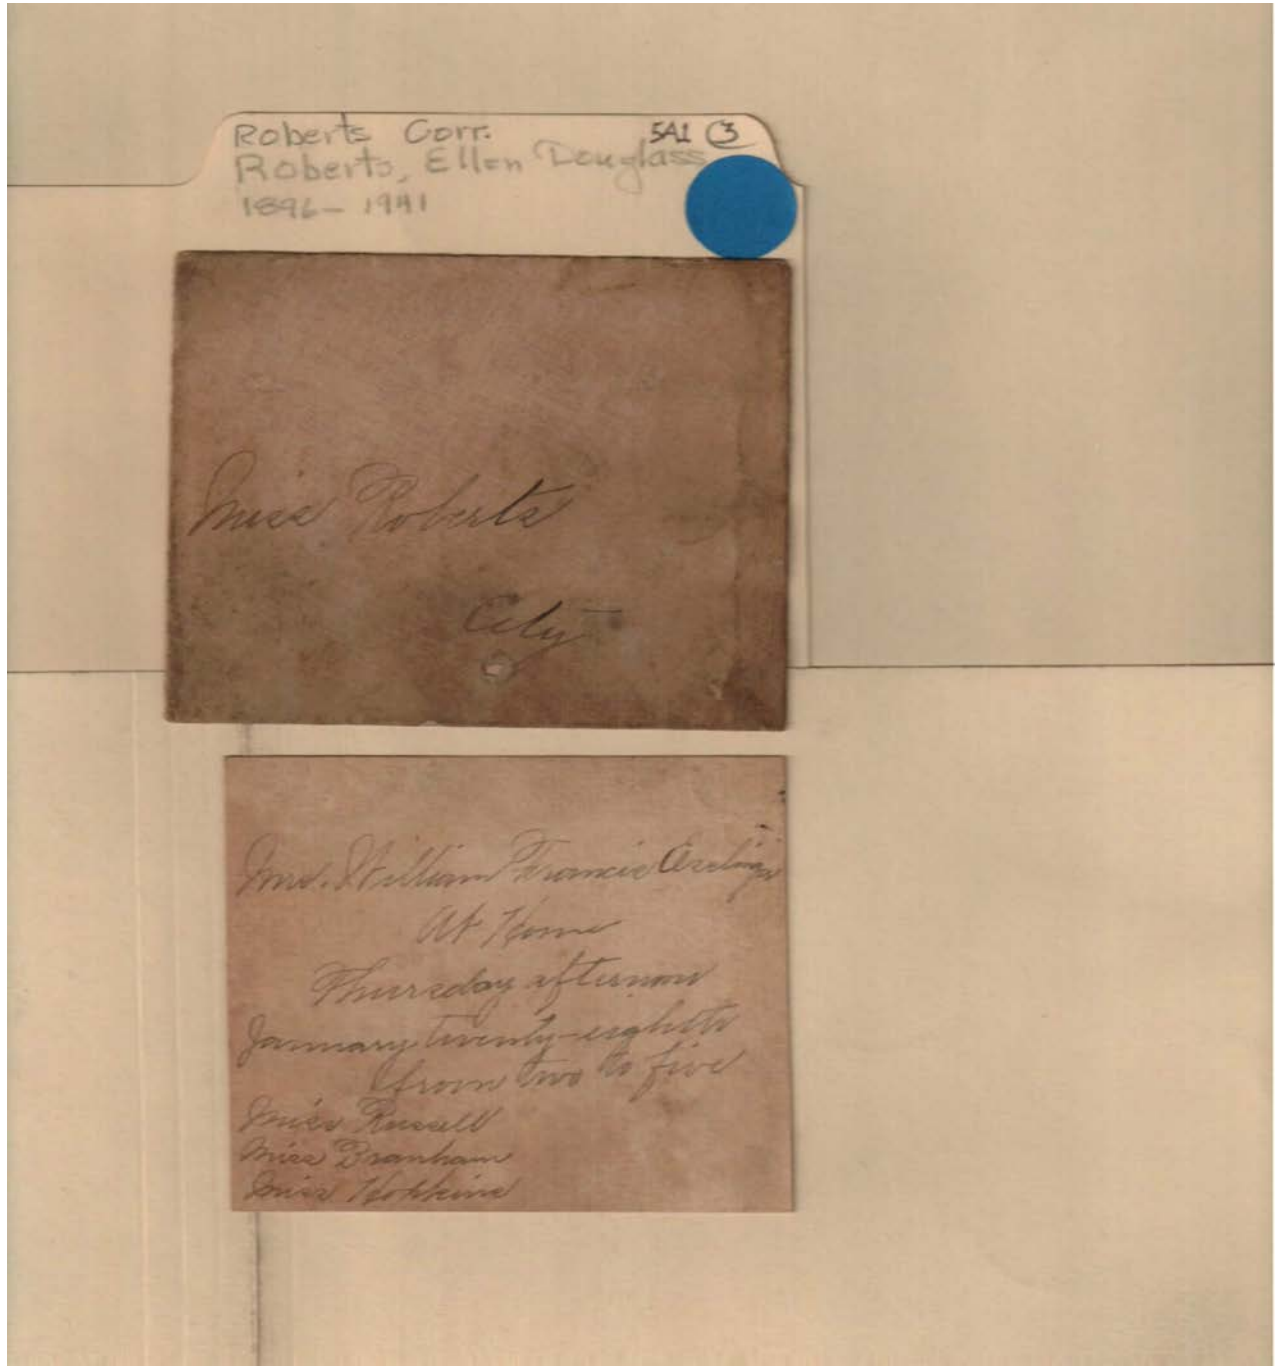 Roberts Corr. 5A1 3
Roberts, Ellen Douglass
1896-1941
Miss Roberts
City
Mrs. William Francis
At Home
Thursday afternoon
January twenty-eighth
from two to five
Miss Russell
Miss Branham
Miss Hopkins